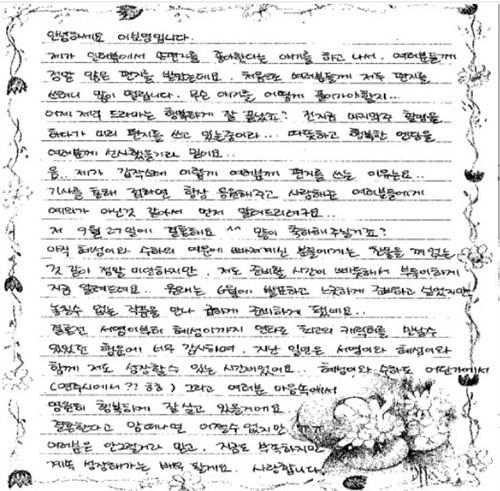 안녕하세요 이보영입니다.
제가 인터뷰에서 손편지를 좋아한다는 얘기를 하고 나서, 여러분들께
정말 많은 편지를 받았는데요. 처음으로 여러분들께 저도 편지를
쓰려니 많이 떨립니다. 무슨 얘기를 어떻게 풀어가야할지...
어제 저의 드라마는 행복하게 잘 끝났죠? 전 지금 마지막주 촬영을
하다가 미리 편지를 쓰고 있는중이라... 따뜻하고 행복한 엔딩을
여러분께 선사했을거라 믿어요..
음.. 제가 갑작스레 이렇게 여러분께 편지를 쓰는 이유는요..
기사를 통해 전하면 항상 응원해주고 사랑해준 여러분들에게
예의가 아닌것 같아서 먼저 알려드리려구요..
저 9월 27일에 결혼해요 ^^ 많이 축하해주실거죠?
아직 혜성이와 수하의 여운에 빠져계신 분들에게는 찬물을 끼얹는
것 같아 정말 미안하지만, 저도 준비할 시간이 빠듯해서 부득이하게
지금 알려드려요.. 원래는 6월에 발표하고 느긋하게 준비하고 싶었지만
놓칠수 없는 작품을 만나 급하게 준비하게 됐네요..
결혼전 서영이부터 혜성이까지 연타로 최고의 캐릭터를 만날수
있었던 행운에 너무 감사하며, 지난 일년은 서영이와 혜성이와
함께 저도 성장할수 있는 시간이었어요.. 혜성이와 수하도 어딘가에서
(연주시에서?? ㅎㅎ) 그리고 여러분 마음속에서
영원히 행복하게 잘 살고 있을거에요
결혼한다고 맘 떠나면 어쩔수 없지만
여러분은 안그럴거라 믿고, 지금도 부족하지만
계속 성장해가는 배우 될게요. 사랑합니다